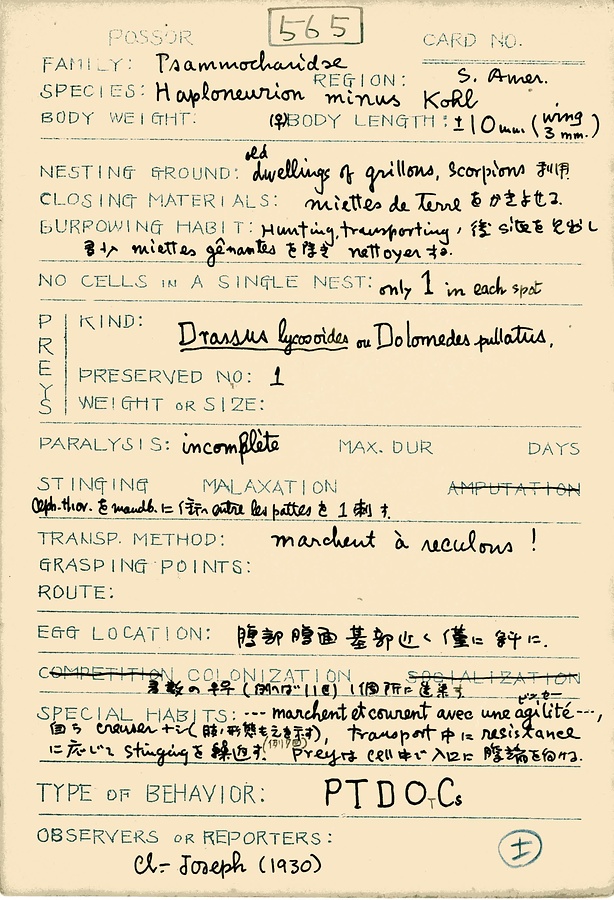 565
POSSOR CARD NO.
FAMILY: Psammocharidae
REGION: S. Amer.
SPECIES: Haploneurion minus Kohl
BODY WEIGHT: (♀)BODY LENGTH: ±10mm. (wing 3 mm.)
NESTING GROUND: old dwellings of grillons, Scorpions 利用
CLOSING MATERIALS: miettes de terre をかきよせる.
BURROWING HABIT: Hunting, transporting, 後 siteを見出し
miettes gênantes を除き nettoyer する.
NO CELLS IN A SINGLE NEST: only 1 in each spot
PREYS
KIND:
Drassus lycosoides ou Dolomedes pullatus,
PRESERVED NO: 1
WEIGHT OR SIZE:
PARALYSIS: incomplète MAX. DUR DAYS
STINGING MALAXATION AMPUTATION
Ceph.-thor. を mandb. に entre les pattes を 1 刺す.
TRANSP. METHOD: marchent à reculons !
GRASPING POINTS:
ROUTE:
EGG LOCATION: 腹部腹面基部近く僅に斜に.
COMPETITION COLONIZATION SOCIALIZATION
多数の♀♀ (例へば11♀) 1個所に
SPECIAL HABITS: --- marchent et courent avec une agilité ---,
自ら creuser せず transport 中に resistance
に応じて stingingを繰返す. preyは cell中で入口に腹端を向ける.
TYPE OF BEHAVIOR: PTDOTCs
OBSERVERS OR REPORTERS:
Cl- Joseph (1930)
±